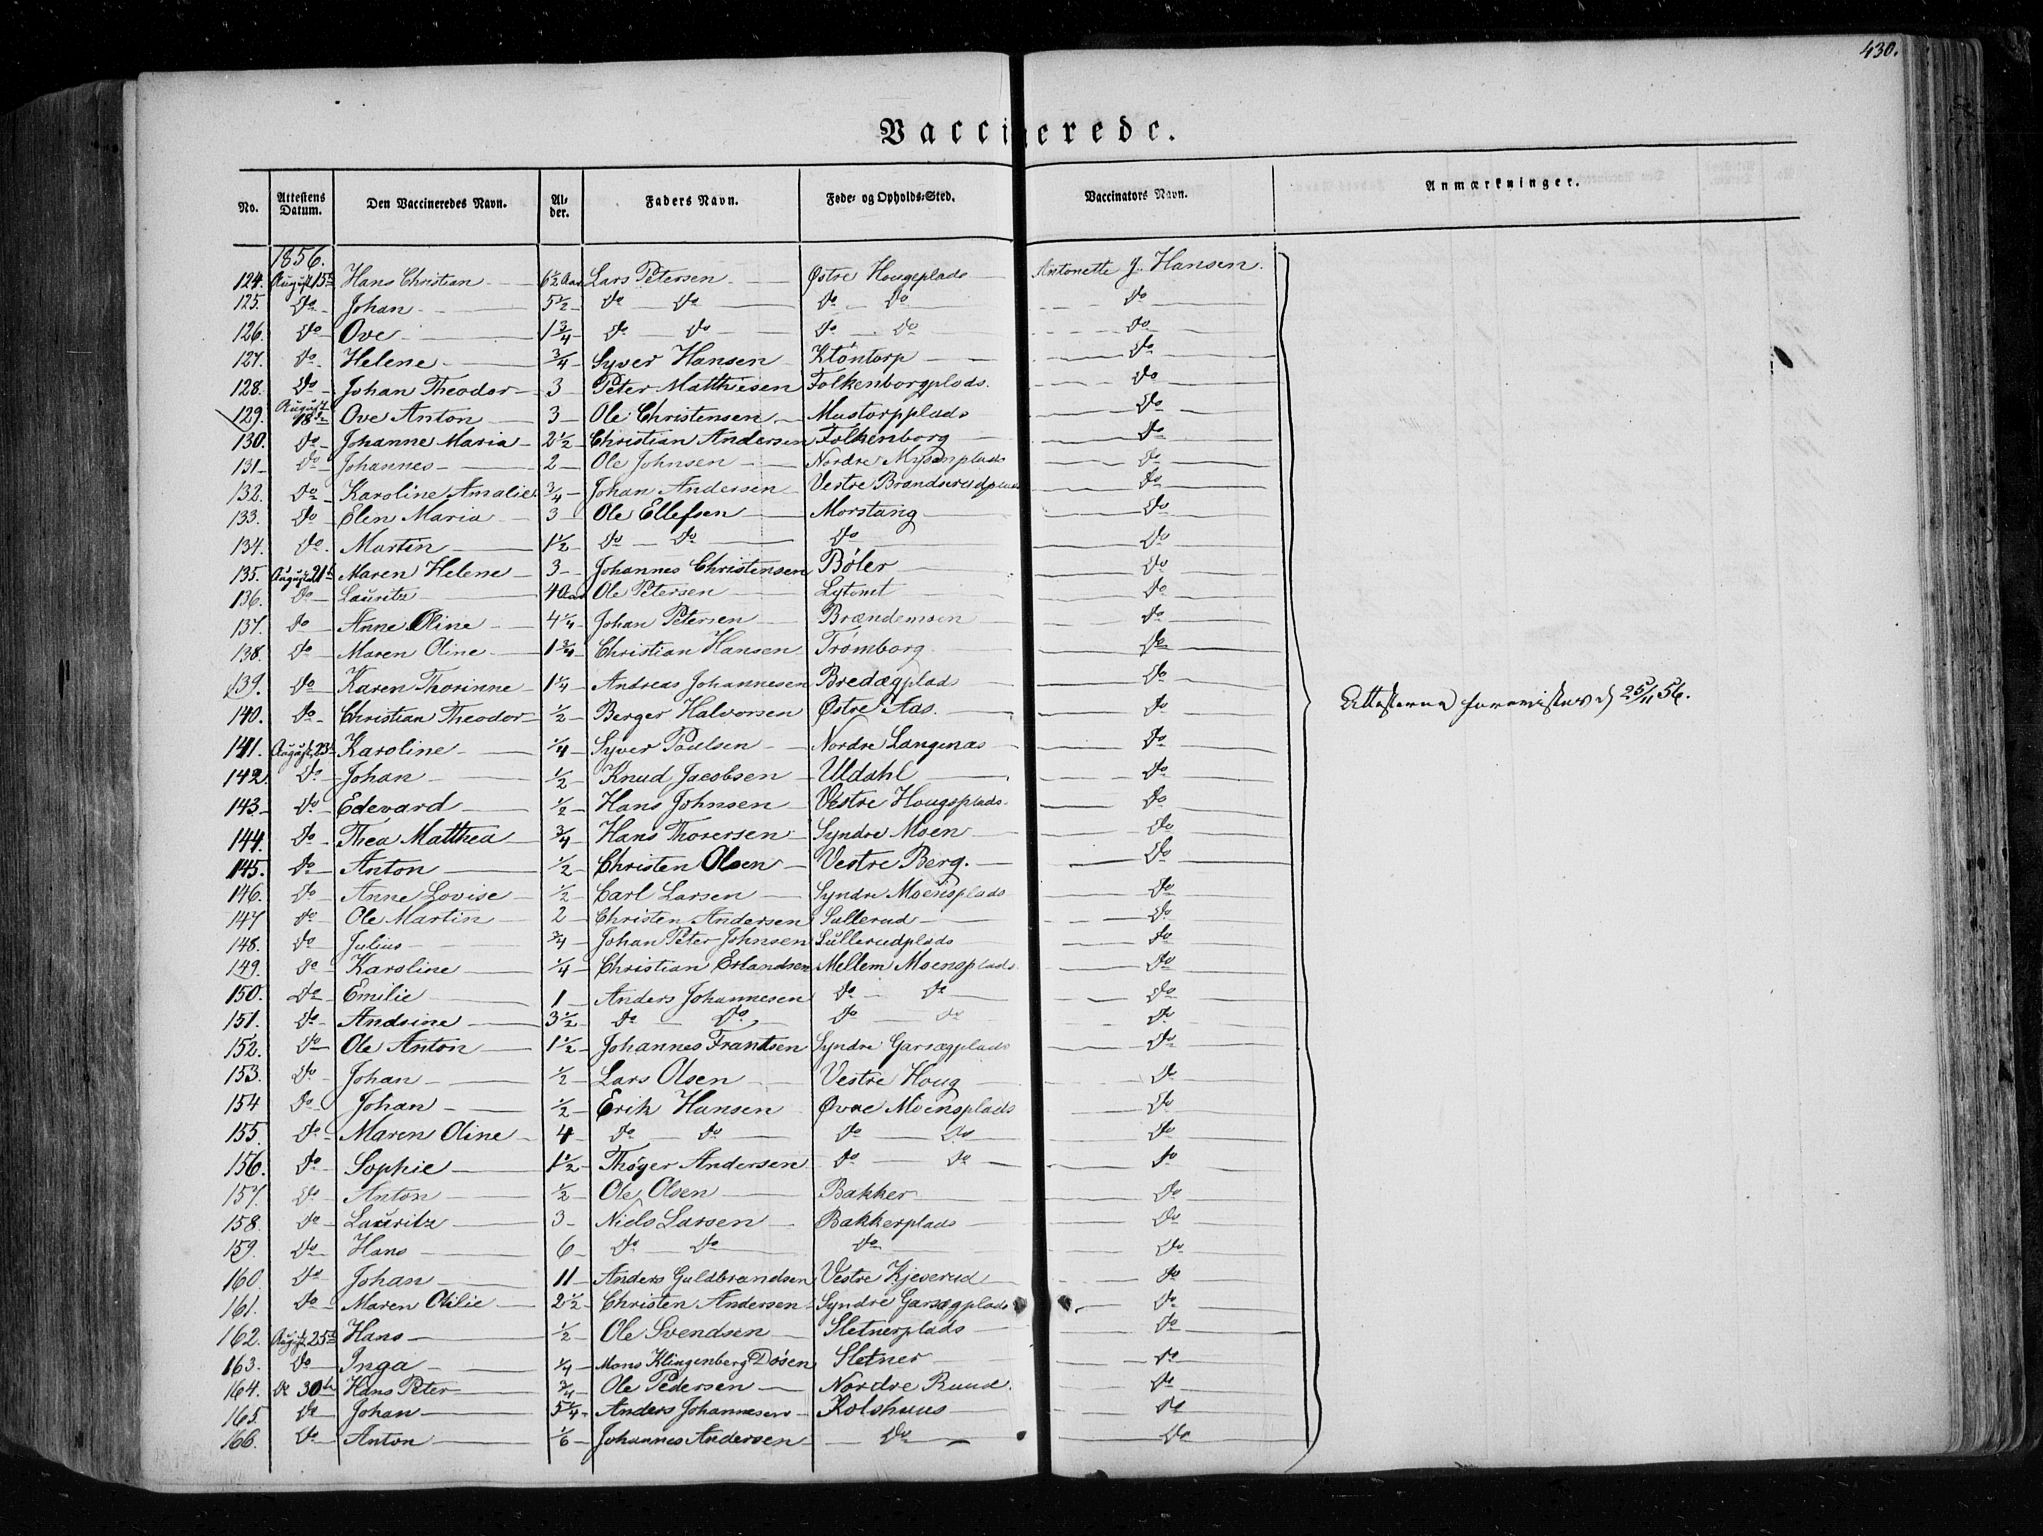 430.
Vaccinerede.
No. Attestens Datum. Den Vaccineredes Navn. Al-der. Faders Navn. Føde- og Opholds-Sted. Vaccinators Navn. Anmærkninger.
1856.
124. August 15de Hans Christian 6½ Aar Lars Petersen Østre Hougsplads Antonette J. Hansen.
125. Do Johan 5½ Do Do Do Do Do
126. Do Ove 1¾ Do Do Do Do Do
127. Do Helene ¾ Syver Hansen Kløntorp Do
128. Do Johan Theodor 3 Peter Matthiesen Folkenborgplads. Do
129. August 18de Ove Anton 3 Ole Christensen Mustorpplads Do
130. Do Johanne Maria 2½ Christian Andersen Folkenborg Do
131 Do Johannes 2 Ole Johnsen Nordre Mysenplads Do
132. Do Karoline Amalie ¾ Johan Andersen Vestre Brandsrudplads Do
133. Do Elen Maria 3 Ole Ellefsen Morstang Do
134. Do Martin 1½ Do Do Do Do
135. August 21de Maren Helene 3 Johannes Christensen Bøler Do
136. Do Lauritz 4 Aar Ole Petersen Lytomt Do
137. Do Anne Oline 4¼ Johan Petersen Brændemoen Do
138. Do Maren Oline 1¾ Christian Hansen Trømborg Do
139. Do Karen Thorinne 1¼ Andreas Johannesen Bredægplads Do
140. Do Christian Theodor ½ Berger Halvorsen Østre Aas. Do Attesterne foreviste d 25/11 56.
141. August 23de Karoline ¼ Syver Poulsen Nordre Langenæs Do
142 Do Johan ½ Knud Jacobsen Uldahl Do
143. Do Edevard ½ Hans Johnsen Vestre Hougsplads. Do
144. Do Thea Matthea ¾ Hans Thorersen Syndre Moen Do
145. Do Anton ½ Christen Olsen Vestre Berg. Do
146. Do Anne Lovise ½ Carl Larsen Syndre Moensplads Do
147 Do Ole Martin 2 Christen Andersen Sullerud Do
148. Do Julius ¾ Johan Peter Johnsen Sullerudplads Do
149. Do Karoline ¼ Christian Erlandsen Mellem Moensplads Do
150. Do Emilie 1 Anders Johannesen Do Do Do
151. Do Andsine 3½ Do Do Do Do Do
152. Do Ole Anton 1½ Johannes Frantsen Syndre Garsægplads Do
153. Do Johan ½ Lars Olsen Vestre Houg Do
154 Do Johan ½ Erik Hansen Øvre Moensplads Do
155. Do Maren Oline 4 Do Do Do Do Do
156. Do Sophie 1½ Thøger Andersen Do Do Do
157. Do Anton ½ Ole Olsen Bakker Do
158. Do Lauritz 3 Niels Larsen Bakkerplads Do
159. Do Hans 6 Do Do Do Do
160 Do Johan 11 Anders Guldbrandsen Vestre Kjeserud Do
161. Do Maren Otilie 2½ Christen Andersen Syndre Garsægplads Do
162. August 25de Hans ½ Ole Svendsen Sletnerplads Do
163. Do Inga ¼ Mons Klingenberg Døsen Sletner Do
164. De 30te Hans Peter ¾ Ole Pedersen Nordre Ruud. Do
165. Do Johan 5¼ Anders Johannesen Kolshuus Do
166. Do Anton 1/6 Johannes Andersen Do Do